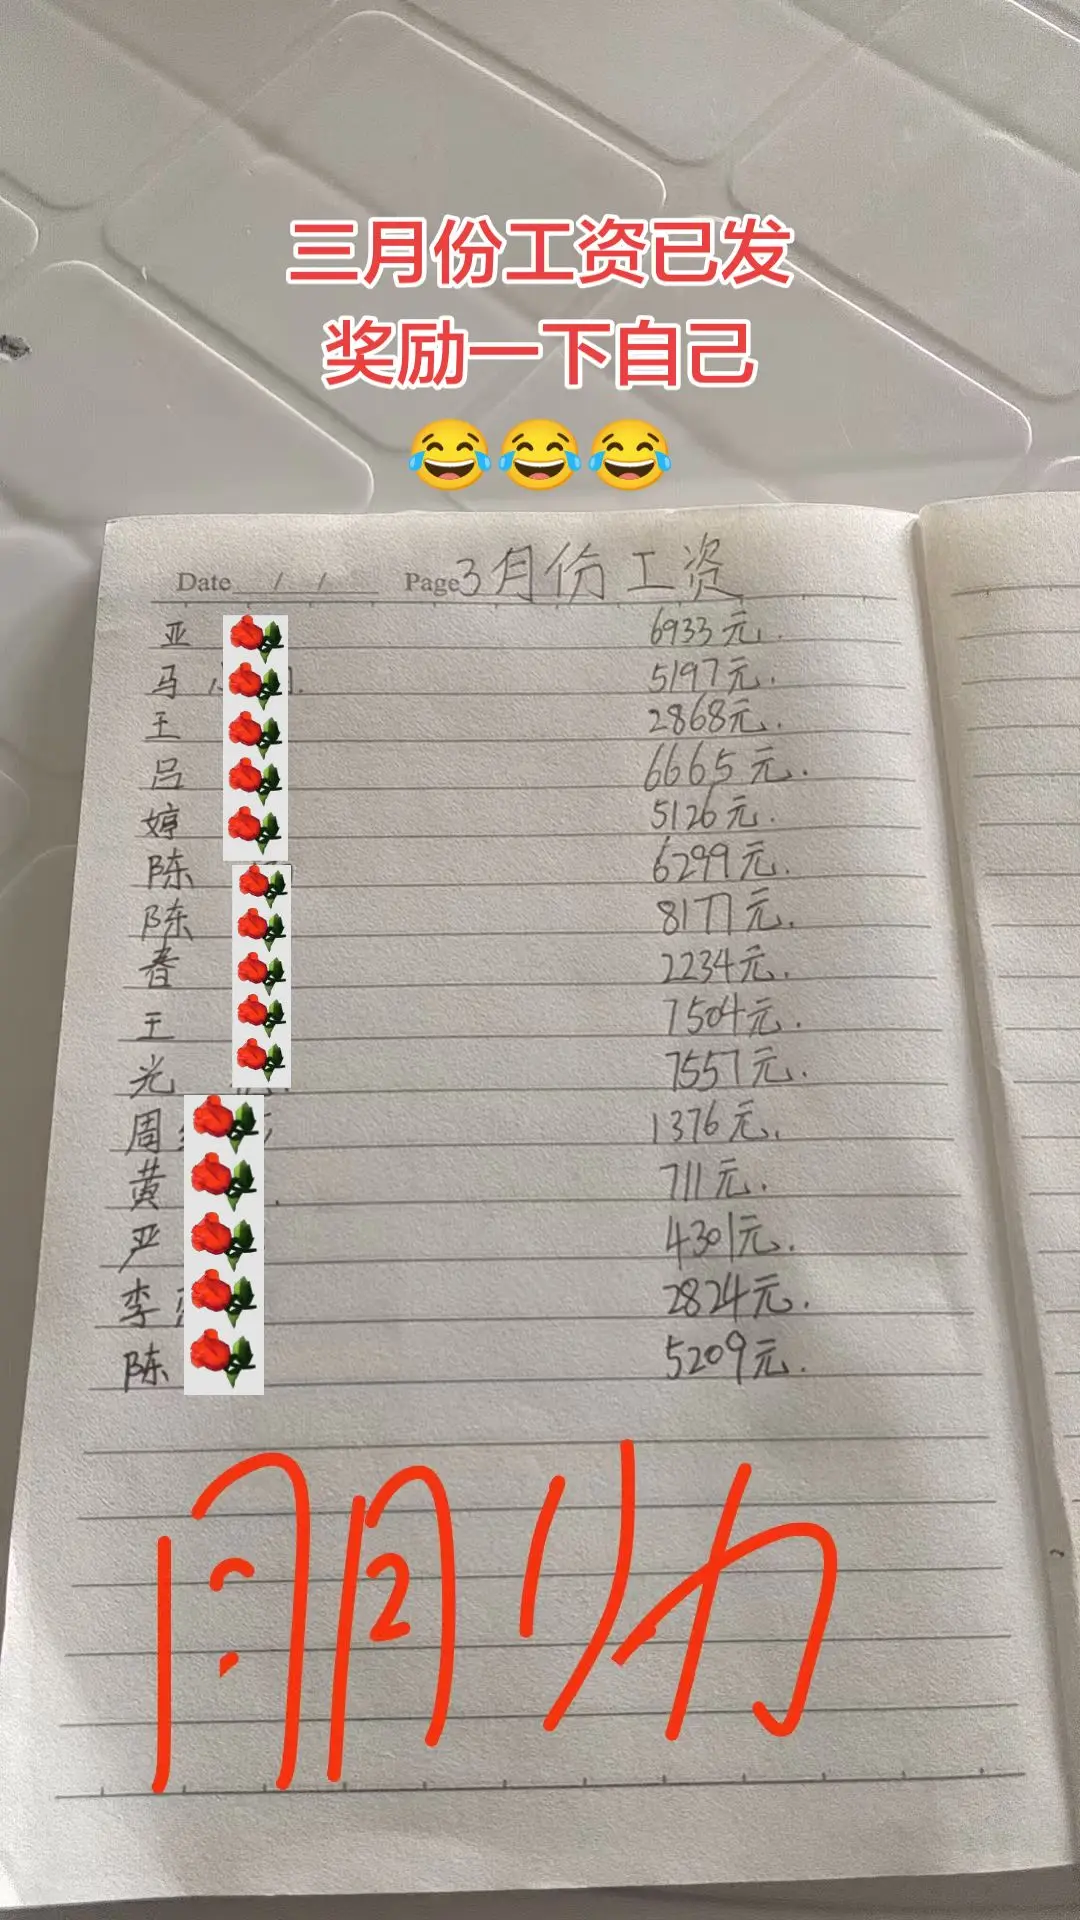 三月份工资已发
奖励一下自己
😂😂😂
Date / / Page 3月份工资
亚 6933元.
马 5197元.
王 2868元.
吕 6665元.
婷 5126元.
陈 6299元.
陈 8177元.
春 2234元.
王 7504元.
光 7557元.
周 1376元.
黄 711元.
严 4301元.
李 2824元.
陈 5209元.